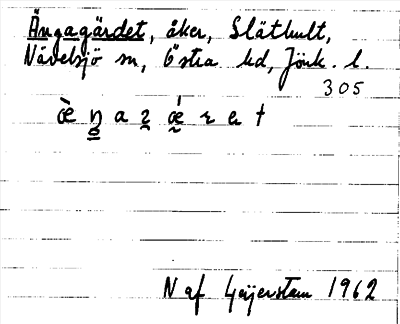 Ängagärdet, åker, Slätkult,
Nävelsjö sn, Östra hd, Jönk. l.
305
N af Geijerstam 1962